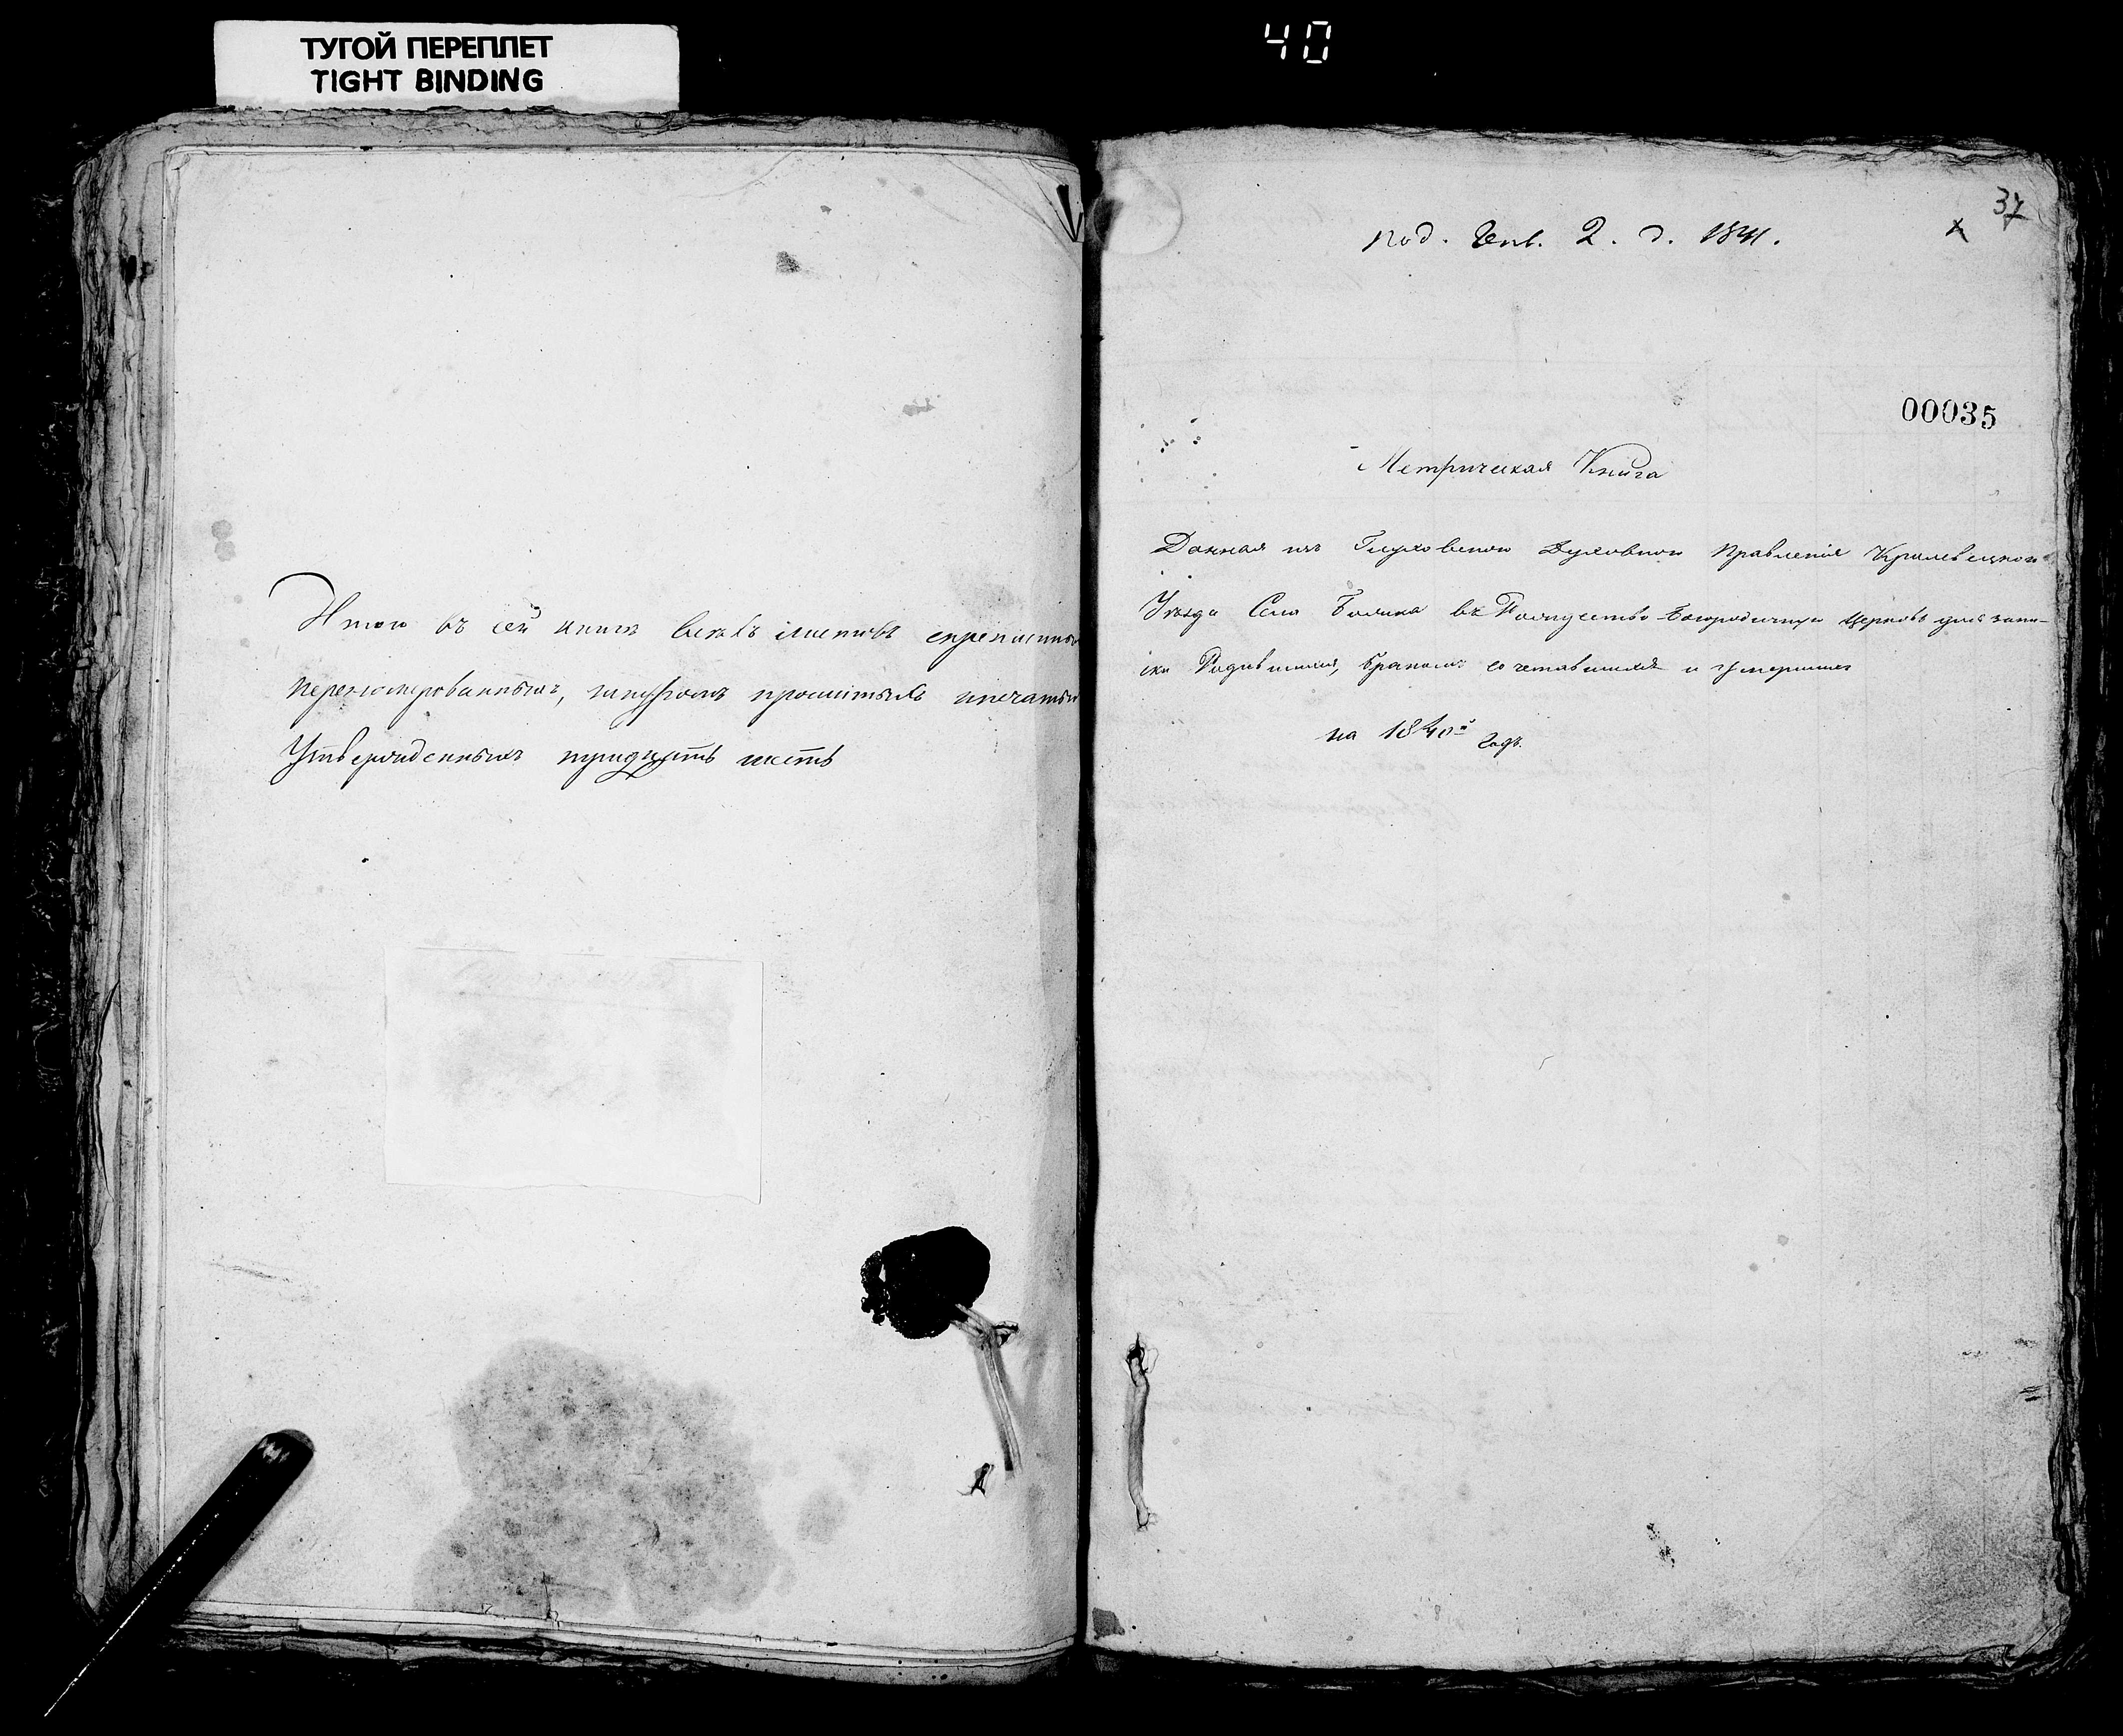 ТУГОЙ ПЕРЕПЛЕТ
TIGHT BINDING
40
Итого въ сей книгѣ всѣхъ листовъ скрепленных
перенумерованныхъ, шнуромъ прошитыхъ ипечатью
Утвержденныхъ тридцать шесть
37
под. Генв. 2. д. 1841.
00035
Метрическая Книга
Данная изъ Глуховского Духовного Правленія Кролевецкого
Уѣзда Села въ Рождество-Богородичную церковь для запи-
ски Родившихся, бракомъ сочетавшихся и умершихъ
на 1840й годъ.